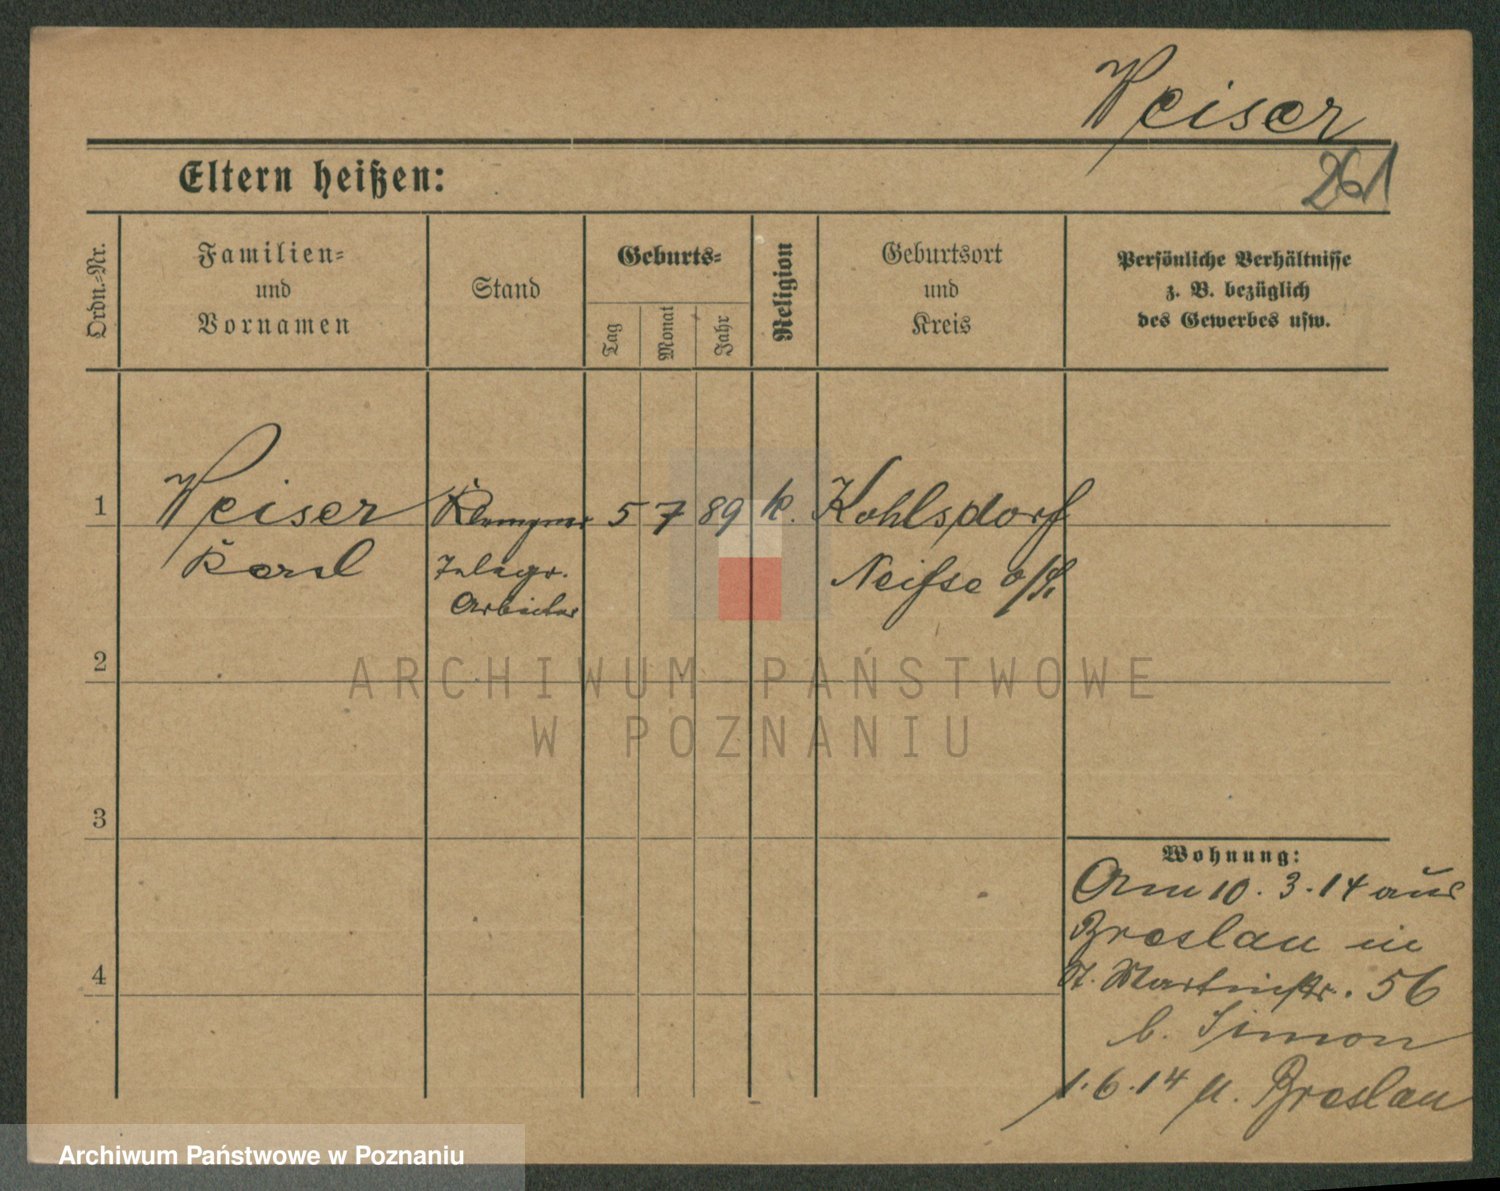 Weiser
261
Eltern heißen:
Ordn.-Nr.
Familien-
und
Vornamen
Stand
Geburts-
Tag
Monat
Jahr
Religion
Geburtsort
und
Kreis
Persönliche Verhältnisse
z. B. bezüglich
des Gewerbes usw.
1
Weiser
Karl
Klempner
Telegr.
Arbeiter
5 7 89 k.
Kohlsdorf
Neisse o/S.
2
ARCHIWUM PAŃSTWOWE
W POZNANIU
3
Wohnung:
Am 10. 3. 14 aus
Breslau in
St. Martinstr. 56
b. Simon
4
1. 6. 14 n. Breslau
Archiwum Państwowe w Poznaniu